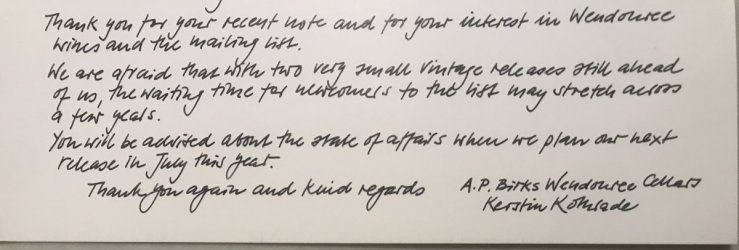 Thank you for your recent note and for your interest in Wendouree
wines and the mailing list.
We are afraid that with two very small vintage releases still ahead
of us, the waiting time for newcomers to the list may stretch across
a few years.
You will be advised about the state of affairs when we plan our next
release in July this year.
Thank you again and kind regards A.P. Birks Wendouree Cellars
Kerstin